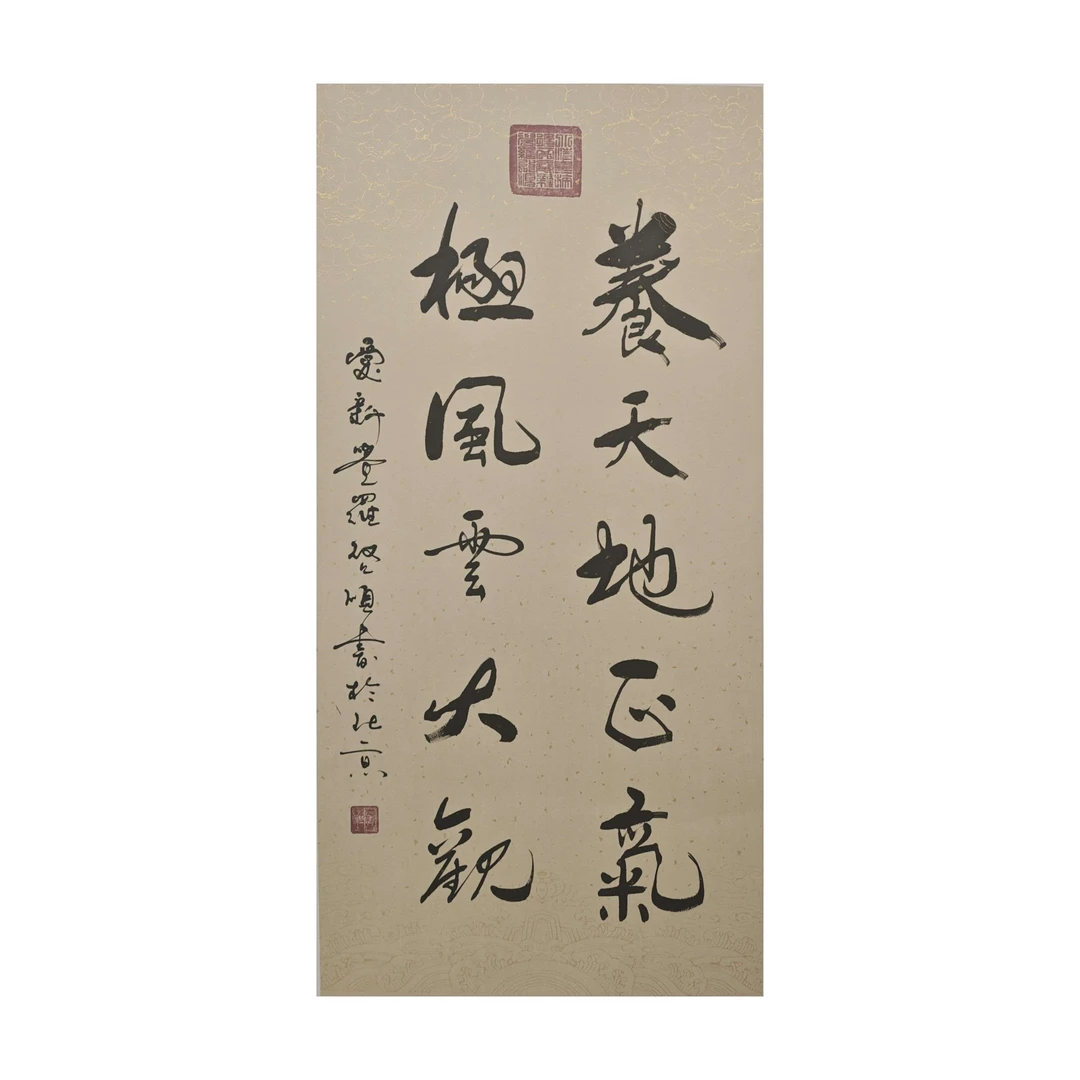 養天地正氣
極風雲大觀
愛新覺羅啓順書於北京